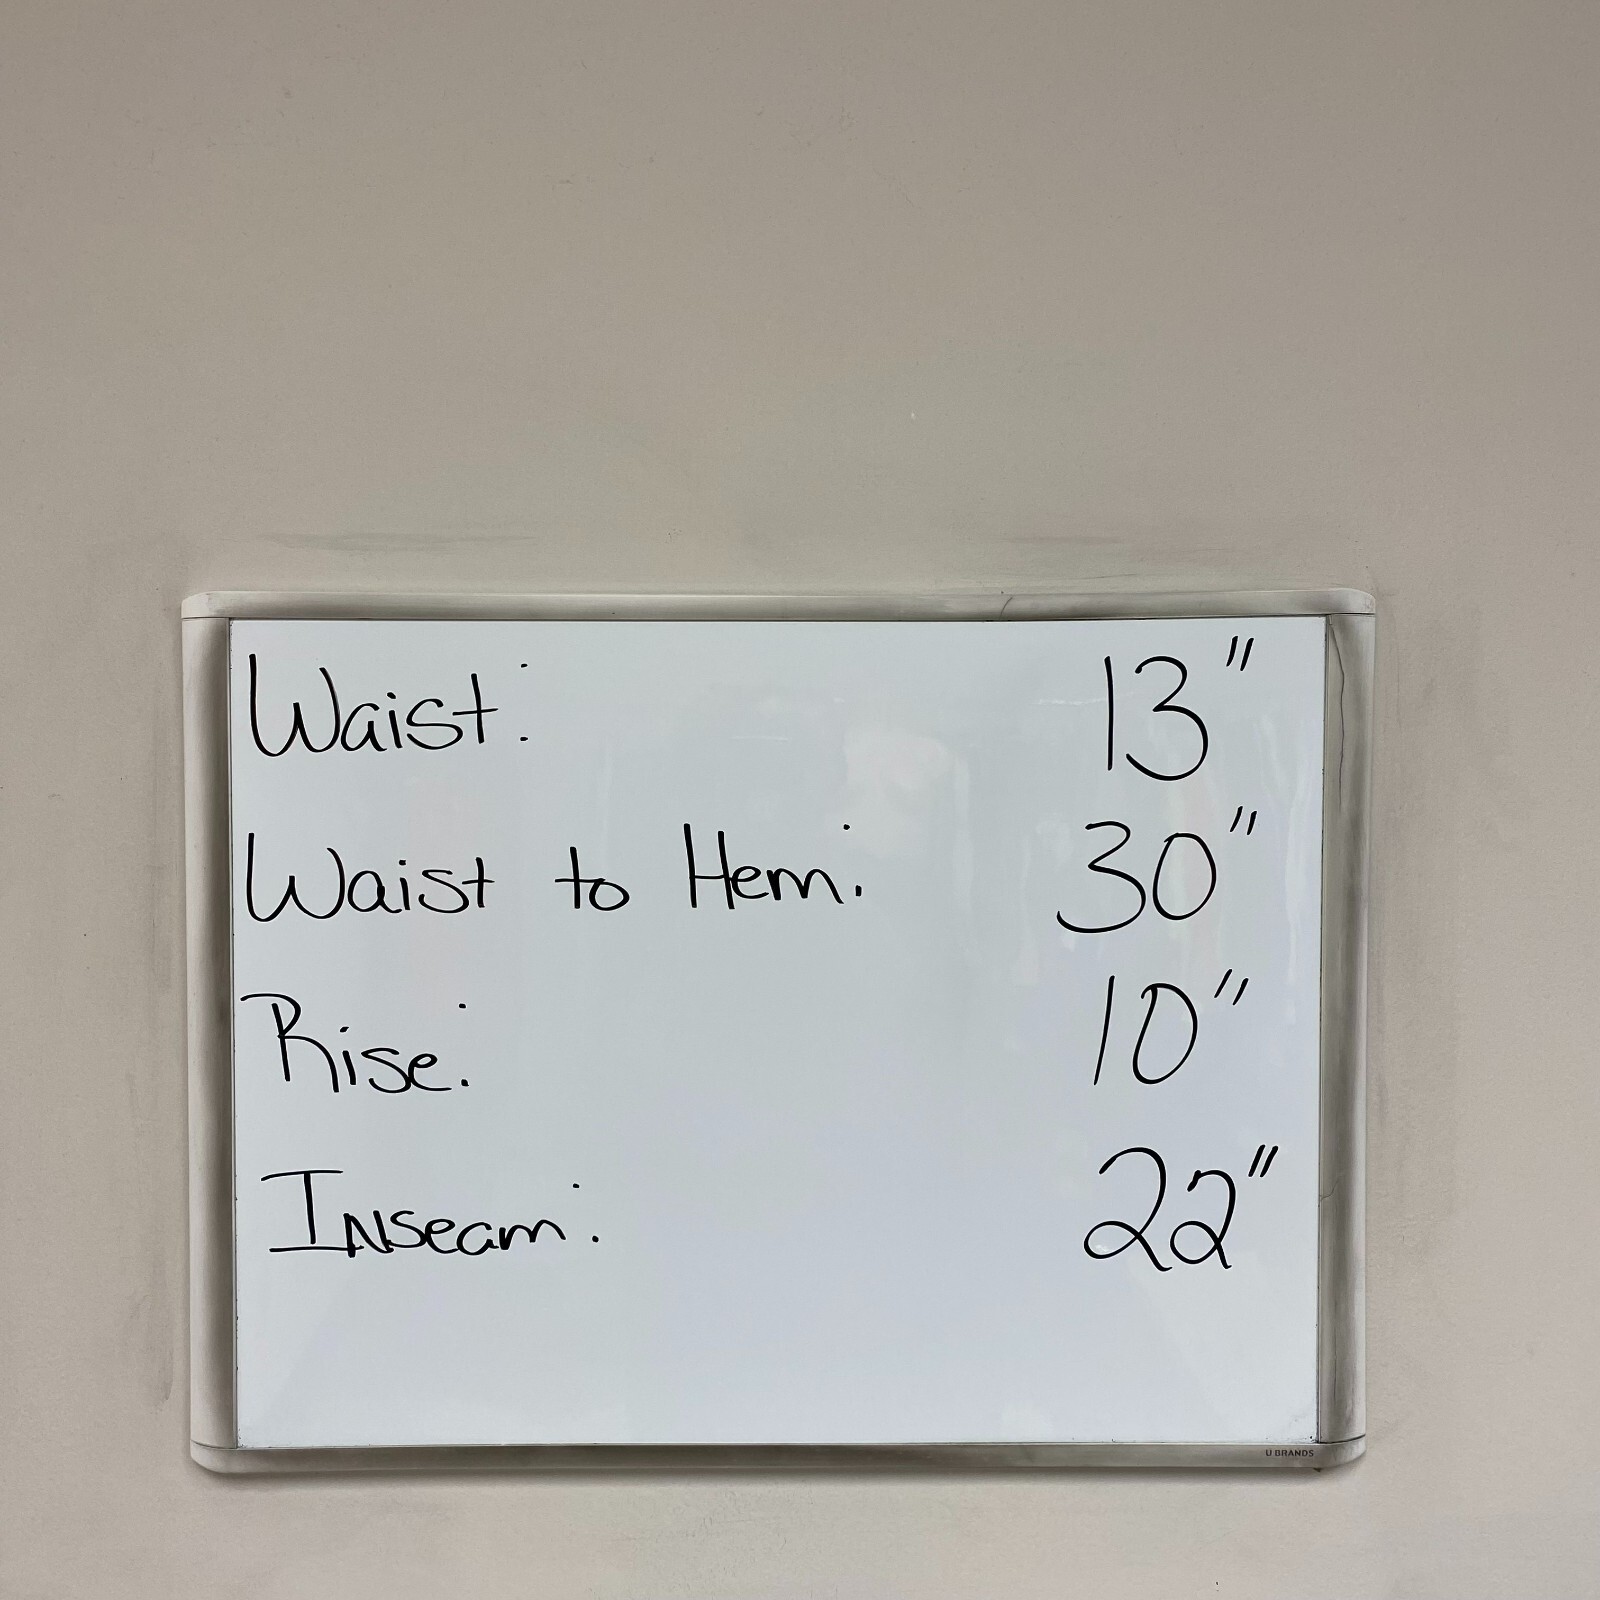 Waist: 13"
Waist to Hem: 30"
Rise: 10"
Inseam: 22"
U BRANDS